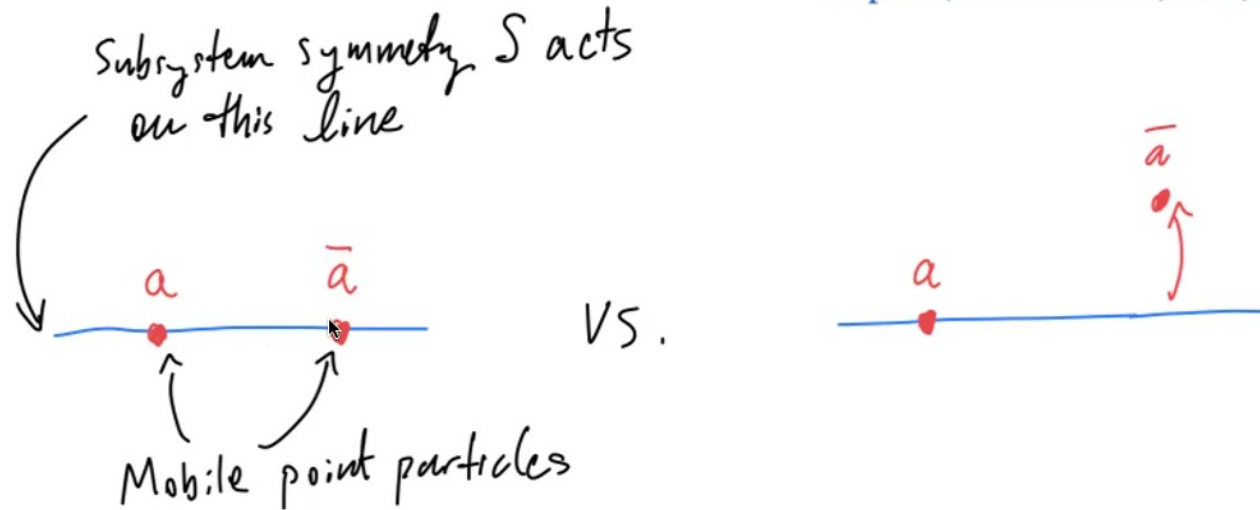 Subsystem symmetry S acts
on this line
a
a̅
vs.
a
a̅
Mobile point particles